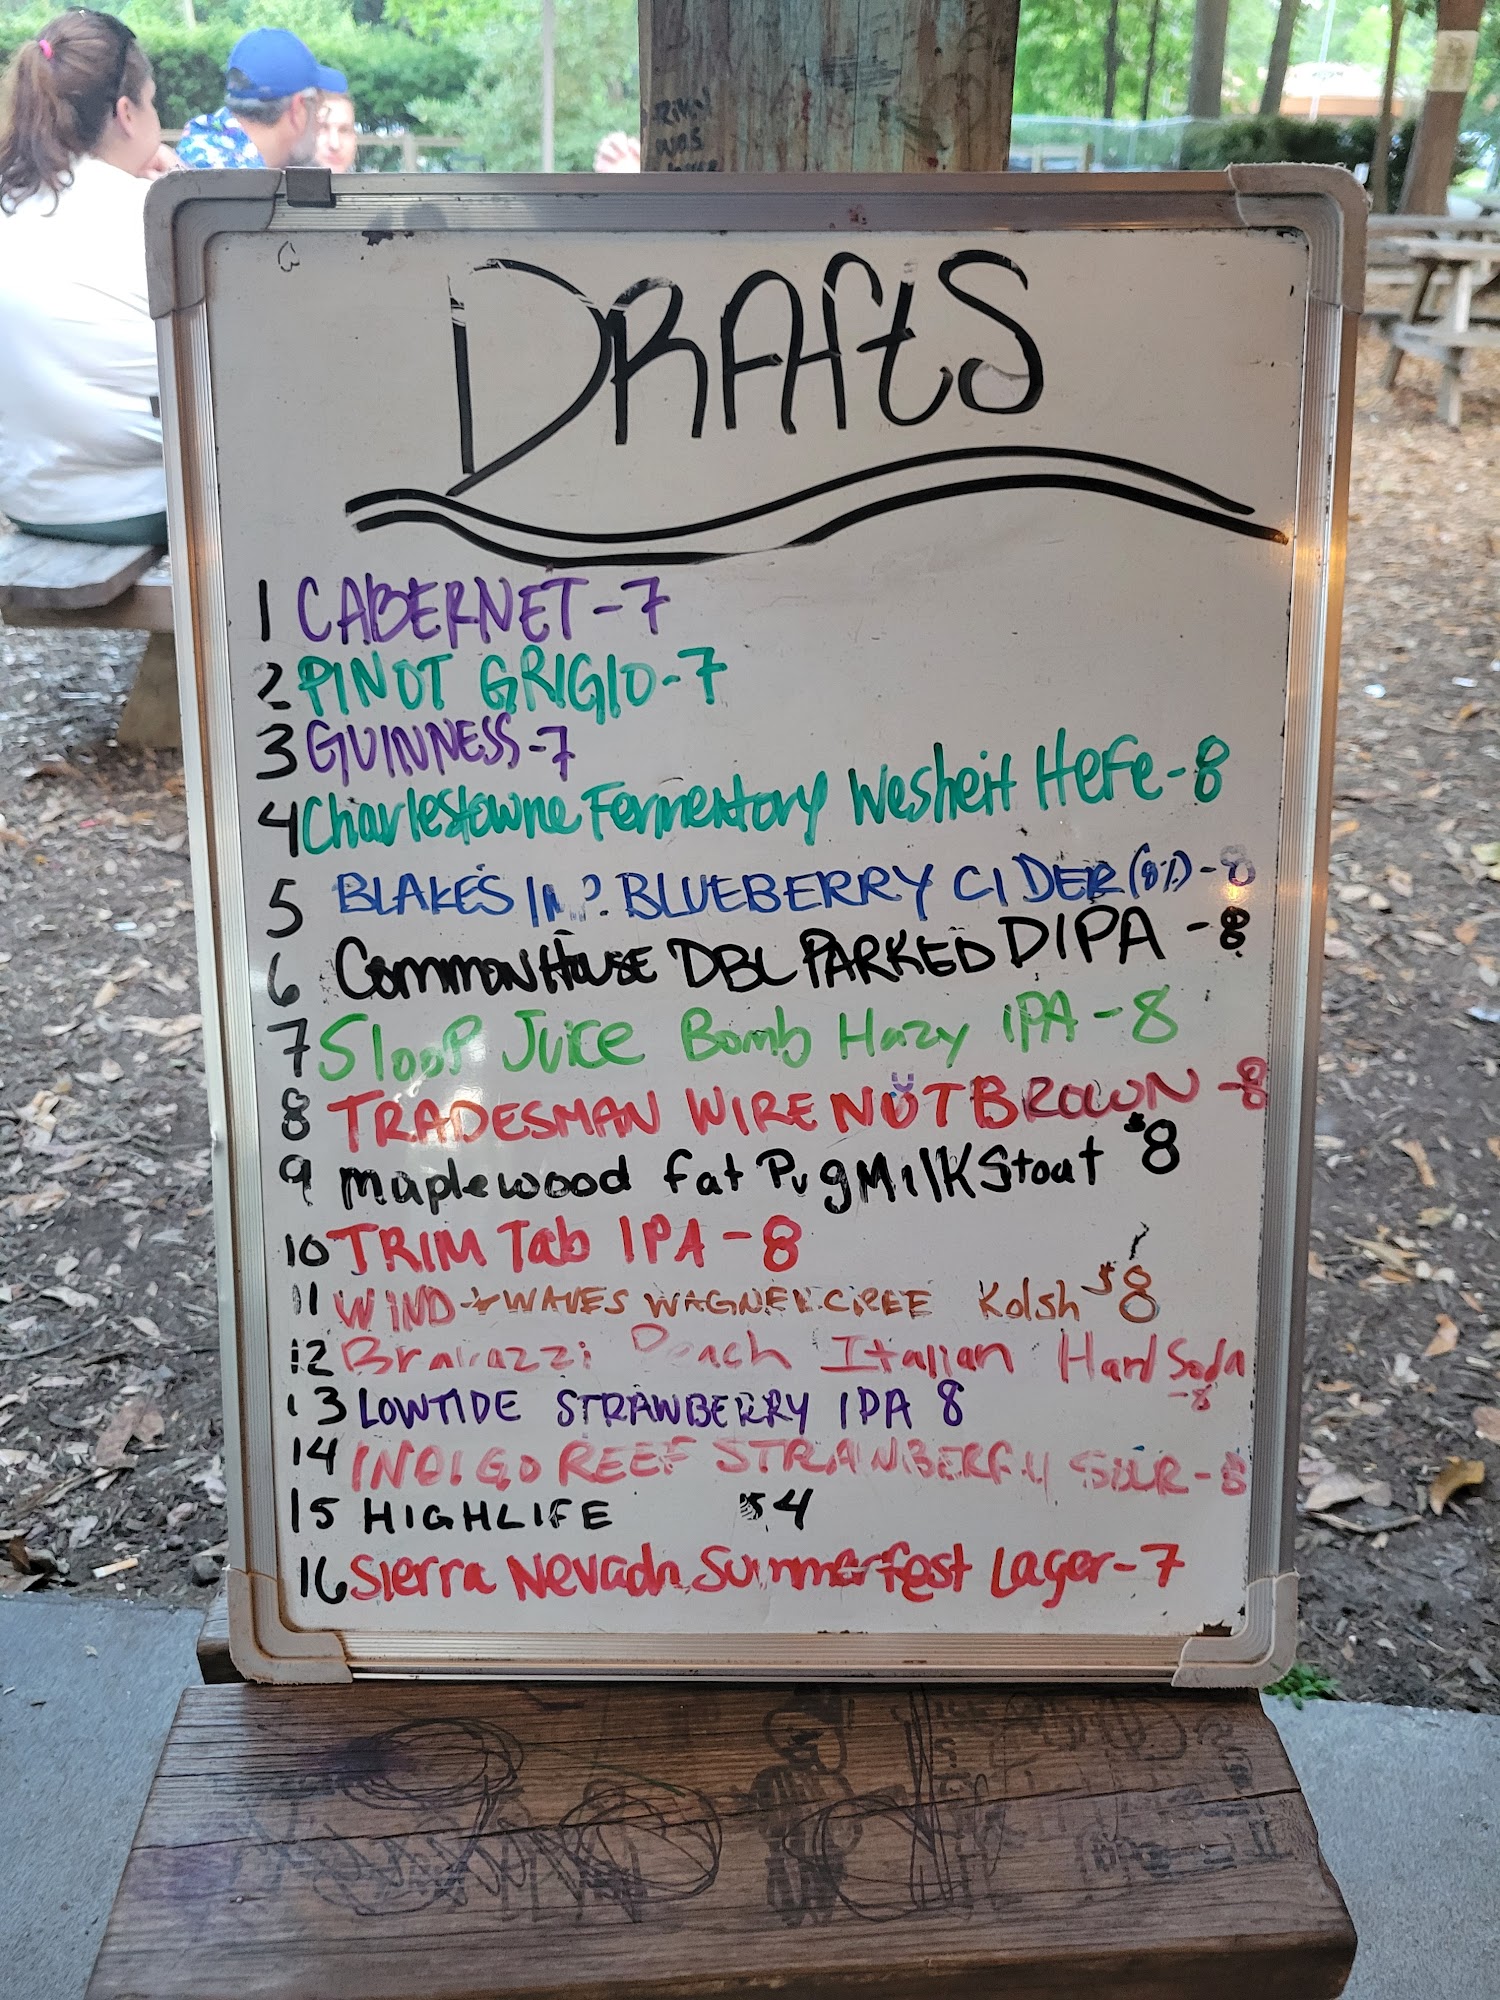 Rikal
was
DRAftS
1 CABERNET-7
2 PINOT GRIGIO-7
3 GUINNESS-7
4 Charlestowne Fermentory Wesheit Hefe-8
5 BLAKES IMP. BLUEBERRY CIDER (8%)-8
6 CommonHouse DBL PARKED DIPA -8
7 Sloop Juice Bomb Hazy IPA-8
8 TRADESMAN WIRE NUT BROWN -8
9 maplewood fat Pug Milk Stout $8
10 TRIM Tab IPA-8
11 WIND + WAVES WAGNER CREE Kolsh $8
12 Bravazzi Peach Italian Hard Soda
-8
13 LOWTIDE STRAWBERRY IPA 8
14 INDIGO REEF STRAWBERRY SOUR-8
15 HIGHLIFE $4
16 Sierra Nevada Summerfest Lager-7